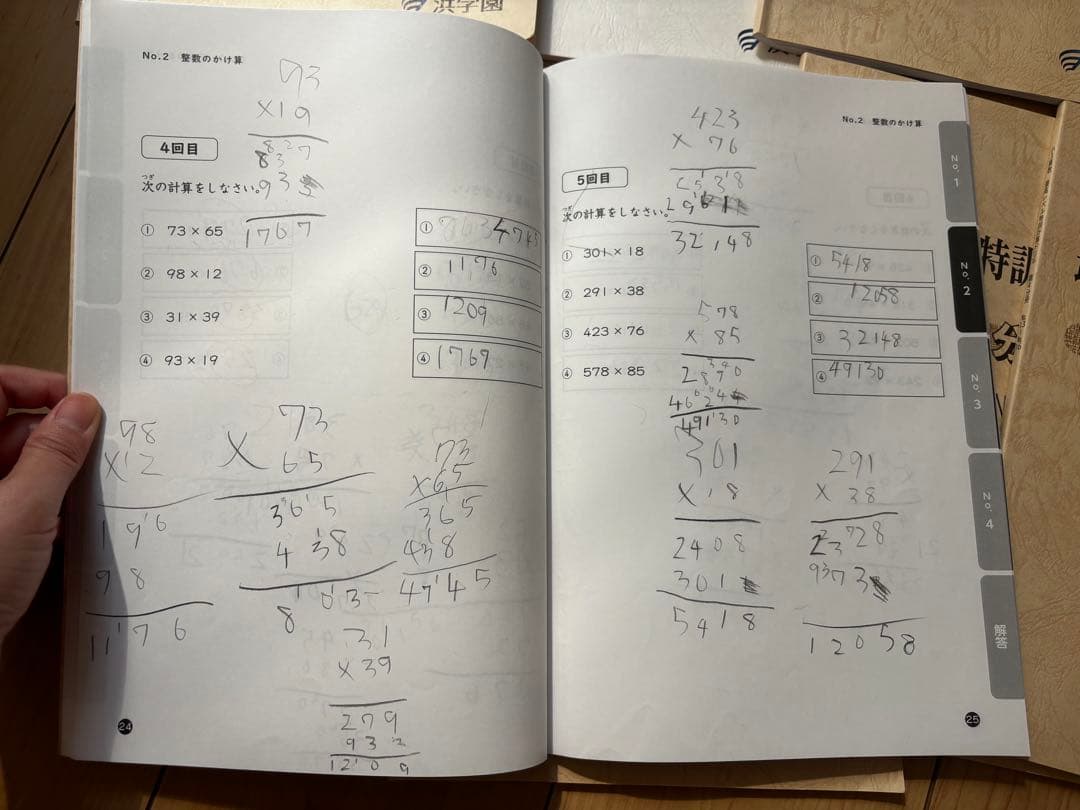 浜学園
No.2 整数のかけ算
73
×19
837
93
1767
4回目
つぎ
次の計算をしなさい。
① 73×65
② 98×12
③ 31×39
④ 93×19
① 4745
② 1176
③ 1209
④ 1769
98
×12
196
98
1176
73
×65
365
438
73
×65
365
438
4745
31
×39
279
93
1209
24
No.2 整数のかけ算
423
× 76
2538
32148
5回目
つぎ
次の計算をしなさい。
① 301×18
② 291×38
③ 423×76
④ 578×85
① 5418
② 12058
③ 32148
④ 49130
578
× 85
2890
49130
301
×18
2408
301
5418
291
× 38
2328
12058
25
No.1
No.2
No.3
No.4
解答
特訓